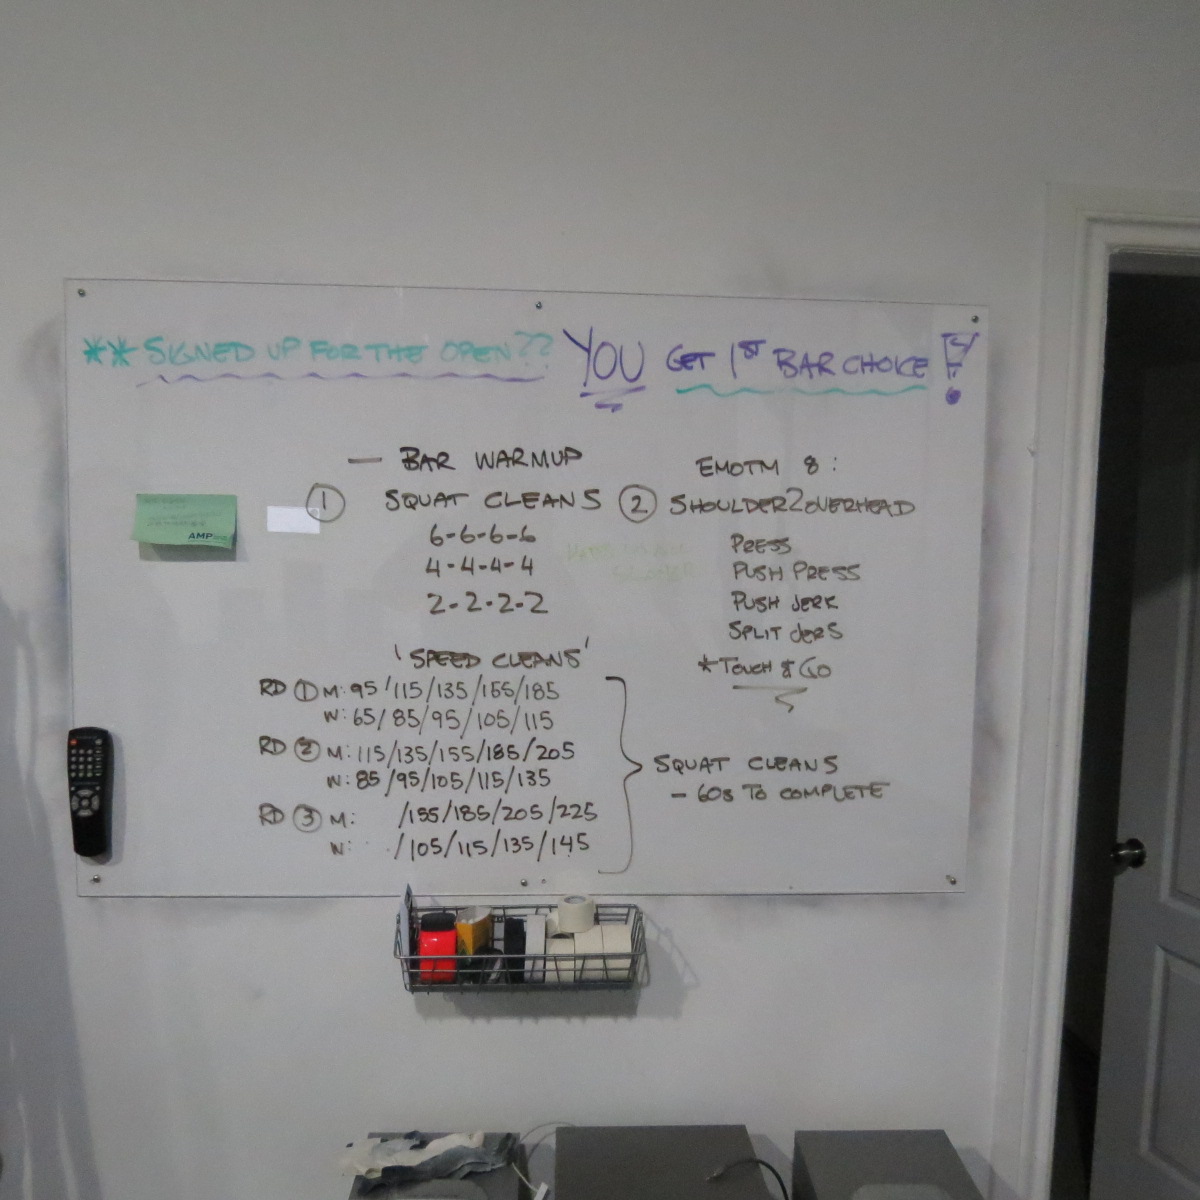 ** SIGNED UP FOR THE OPEN?? YOU GET 1ST BAR CHOICE!
— BAR WARMUP
① SQUAT CLEANS
6-6-6-6
4-4-4-4
2-2-2-2
'SPEED CLEANS'
RD ① M: 95/115/135/155/185
W: 65/85/95/105/115
RD ② M: 115/135/155/185/205
W: 85/95/105/115/135
RD ③ M: /155/185/205/225
W: /105/115/135/145
EMOTM 8:
② SHOULDER2OVERHEAD
PRESS
PUSH PRESS
PUSH JERK
SPLIT JERS
*TOUCH & GO
SQUAT CLEANS
- 60s TO COMPLETE
AMP